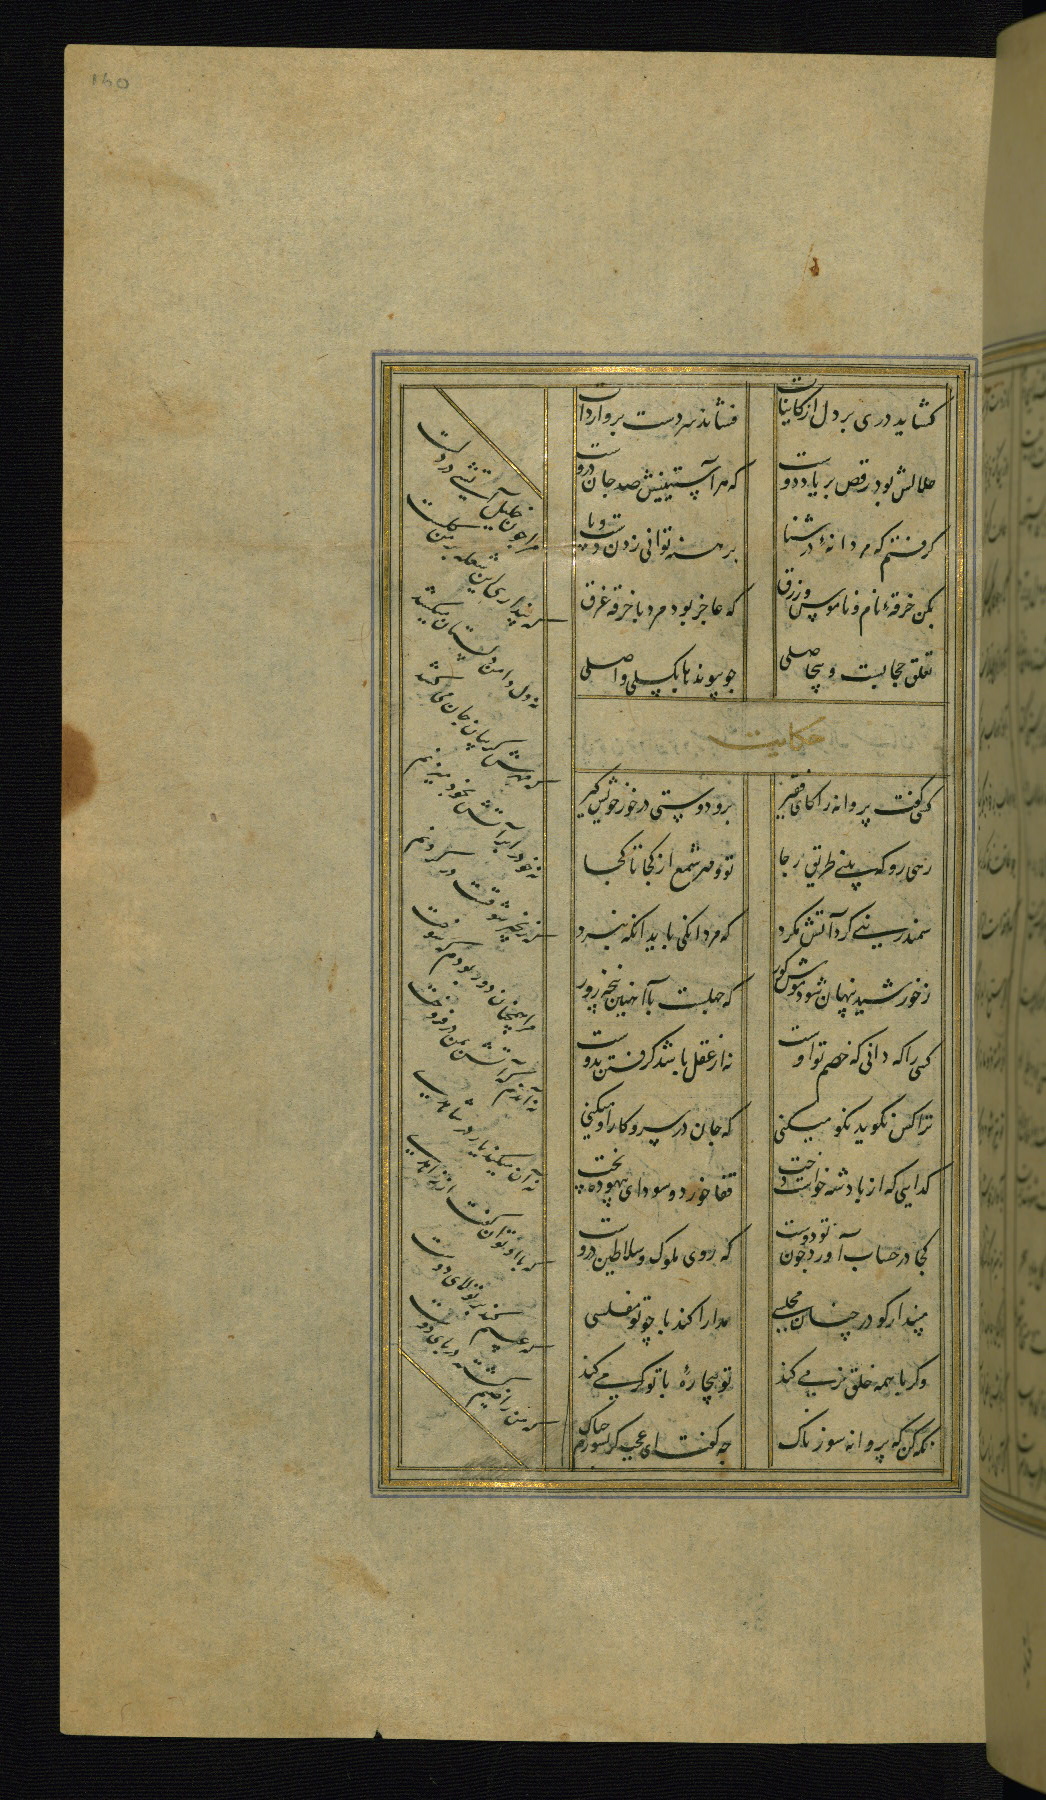 گشاید دری بر دل از کاینات
فشاند سر دست بر واردات
حلالش بود رقص بر یاد دوست
که هر آستینیش صد جان دروست
گرفتم که مردانهٔ در شنا
برهنه توانی زدن دست و پا
بکن خرقهٔ نام و ناموس و زرق
که عاجز بود مرد با خرقه غرق
تعلق حجابست و بیحاصلی
چو پیوندها بکسلی واصلی
حکایت
کسی گفت پروانه را کای حقیر
برو دوستی در خور خویش گیر
رهی رو که بینی طریق رجا
تو و مهر شمع از کجا تا کجا
سمندر نئی گرد آتش مگرد
که مردانگی باید آنگه نبرد
ز خورشید پنهان شود موش کور
که جهلست با آهنین پنجه زور
کسی را که دانی که خصم تو اوست
نه از عقل باشد گرفتن بدوست
ترا کس نگوید نکو میکنی
که جان در سر و کار او میکنی
گدایی که از پادشه خواست دخت
قفا خورد و سودای بیهوده پخت
کجا در حساب آورد چون تو دوست
که روی ملوک و سلاطین درو
مپندار کو در چنان مجلسی
مدارا کند با چو تو مفلسی
وگر با همه خلق نرمی کند
تو بیچارهٔ با تو گرمی کند
نگه کن که پروانه سوزناک
چه گفت ای عجب گر بسوزم چه باک
مرا چون خلیل آتشی در دلست
که پنداری این شعله بر من گلست
نه دل دامن دلستان میکشد
که مهرش گریبان جان می کشد
نه خود را بر آتش بخود میزنم
که زنجیر شوقست در گردنم
مرا همچنان دور بودم که سوخت
نه این دم که آتش بمن در فروخت
نه آن میکند یار در شاهدی
که با او توان گفتن از زاهدی
که عیبم کند بر تولای دوست
که من راضیم کشته در پای دوست
۱۴۵